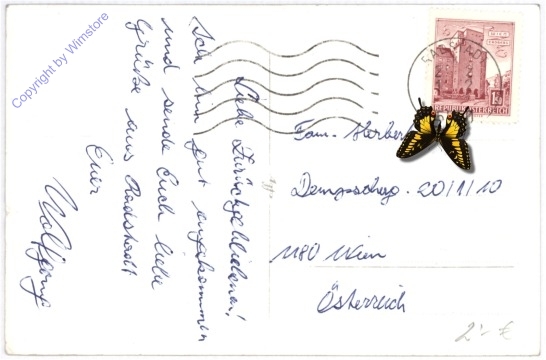 Copyright by Wimstore
Liebe Zurückgebliebenen!
Ich bin gut angekommen
und sende Euch liebe
Grüße aus Radstadt
Euer
Wolfgang
REPUBLIK ÖSTERREICH
RADSTADT
Fam. Herber
20/1/10
1180 Wien
Österreich
2,- €